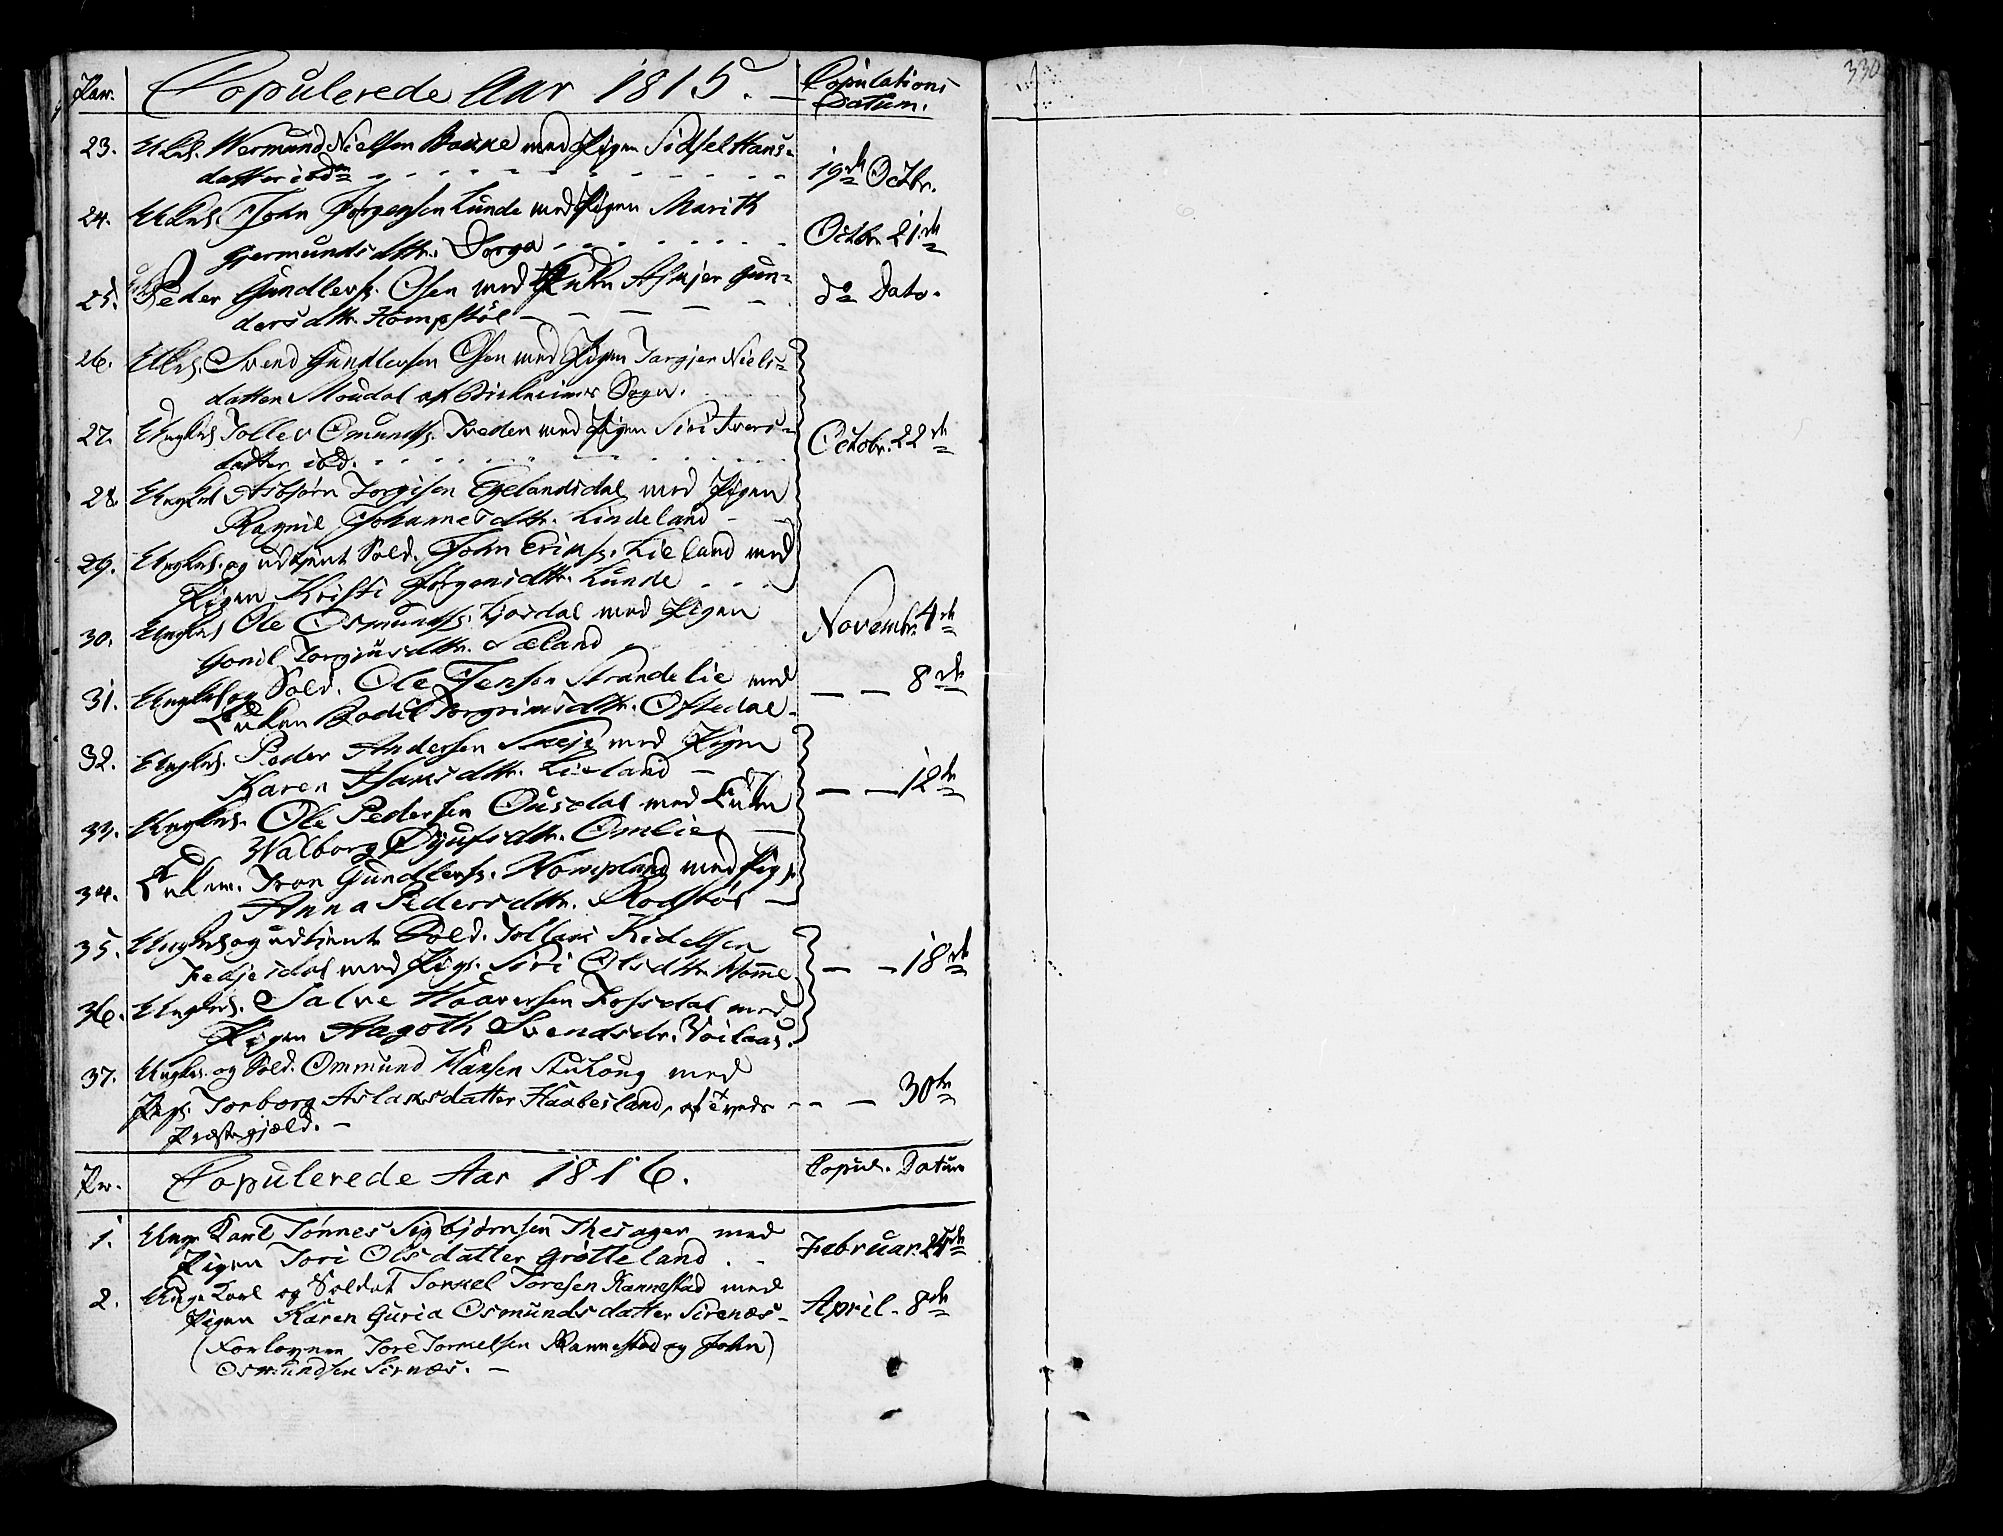 Par. Copulerede Aar 1815. Copulations Datum.
23. Wermund Nielsen Bakke med Pigen Sidsel Hans-
datter ibdm 19de Octbr.
24. John Jørgensen Lunde med Pigen Marith
Gjermundsdttr. Dorga Octbr. 21de
25. Peder Gundlevs. Osen med Enken Asbjer Gun-
dersdttr. Kompstøl do Dato.
26. Svend Gundlevsen Osen med Pigen Torgjer Niels-
datter Moudal af Birkrems Sogn.
27. Ungkrl Tollev Omunds. Tveden med Pigen Siri Ivers-
datter ibd. Octobr. 22de
28. Ungkrl Asbjørn Torgisen Egelandsdal med Pigen
Ragnil Johannesdttr. Lindeland
29. Ungkrl. og udtjent Sold. John Erik. Lieland med
Pigen Kristi Jørgensdttr. Lunde
30. Ungkrl Ole Osmunds. Liosdal med Pigen
Gonil Torgiusdttr. Sæland Novembr. 4de
31. Ungkrl og Sold. Ole Jensen Strandelie med
Enken Bodil Torgrimsdttr. Oftedal — — 8de
32. Ungkrl. Peder Andersen med Pigen
Karen Hansdttr. Lieland — — — 12te
33. Ungkrl. Ole Pedersen Ousdal med Enken
Walborg Omlie —
34. Enkem. Iron Gundlevs. Nompland med Pig.
Anna Pedersdttr. Rodstøl —
35. Ungkrl og udtjent Sold. Tollak Kidelsen
Fedjesdal med Pige. Siri Olsdttr. Homme — — 18de
36. Ungkrl. Salve Haaversen Fossdal med
Pigen Aagoth Svendsdr. Voilaas.
37. Ungkrl. og Sold. Ommund Hansen med
Pige. Torborg Aslaksdatter Haabesland, af — — 30te
Præstegjæld. —
Nr. Copulerede Aar 1816. Copul. Datum
1. Unge Karl Tønnes Sigbjørnsen Thesager med
Pigen Tori Olsdatter Grøtteland. Februar. 25de
2. Unge Karl og Soldat Torkel Toresen Rannestad med
Pigen Karen Guria Osmundsdatter Sirenæs - April. 8de
(Forlovere Tore Torkelsen Rannestad og John)
Osmundsen Sirnæs. —
330